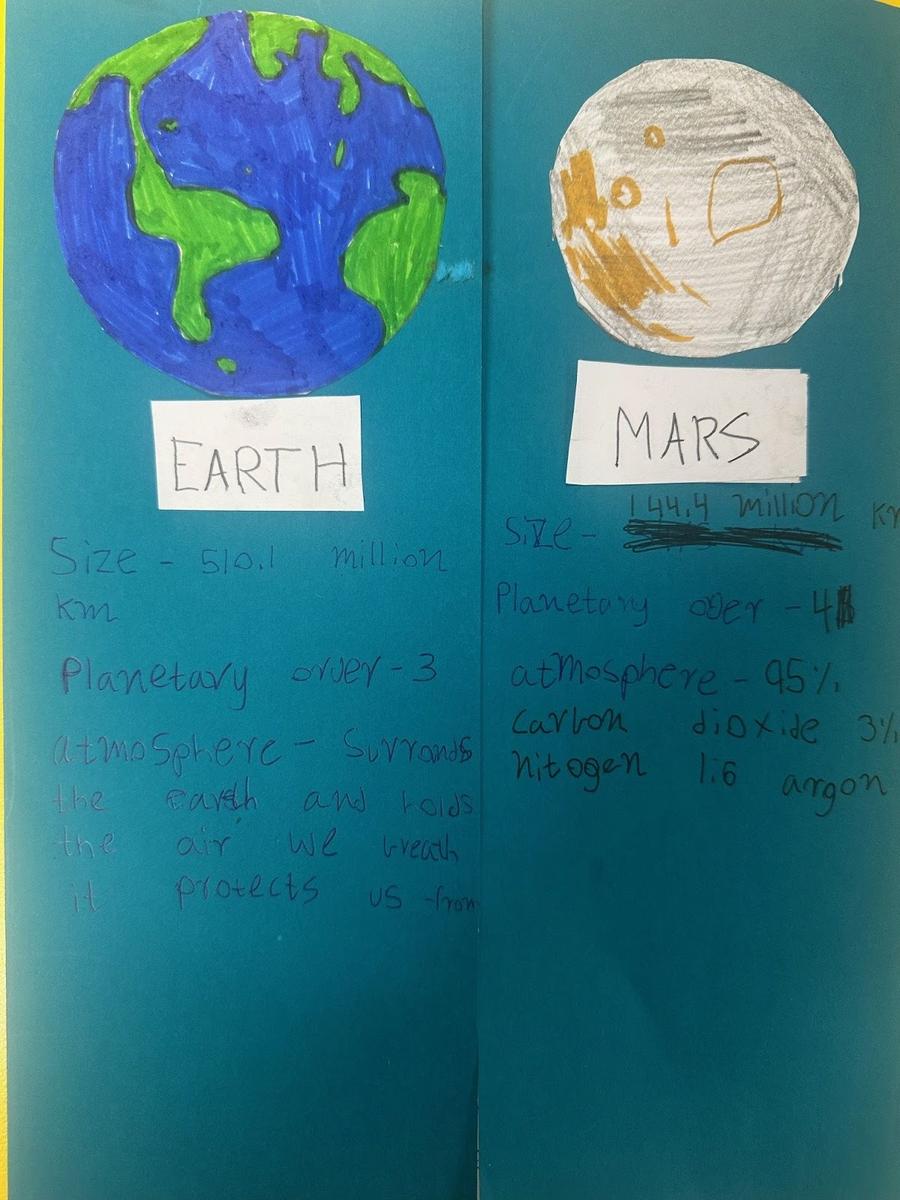 EARTH
Size - 510.1 million
km
Planetary order - 3
atmosphere - Surronds
the earth and holds
the air we breath
it protects us from
MARS
144.4 million km
size -
Planetary oder - 4
atmosphere - 95%
carbon dioxide 3%
nitogen 1.6 argon